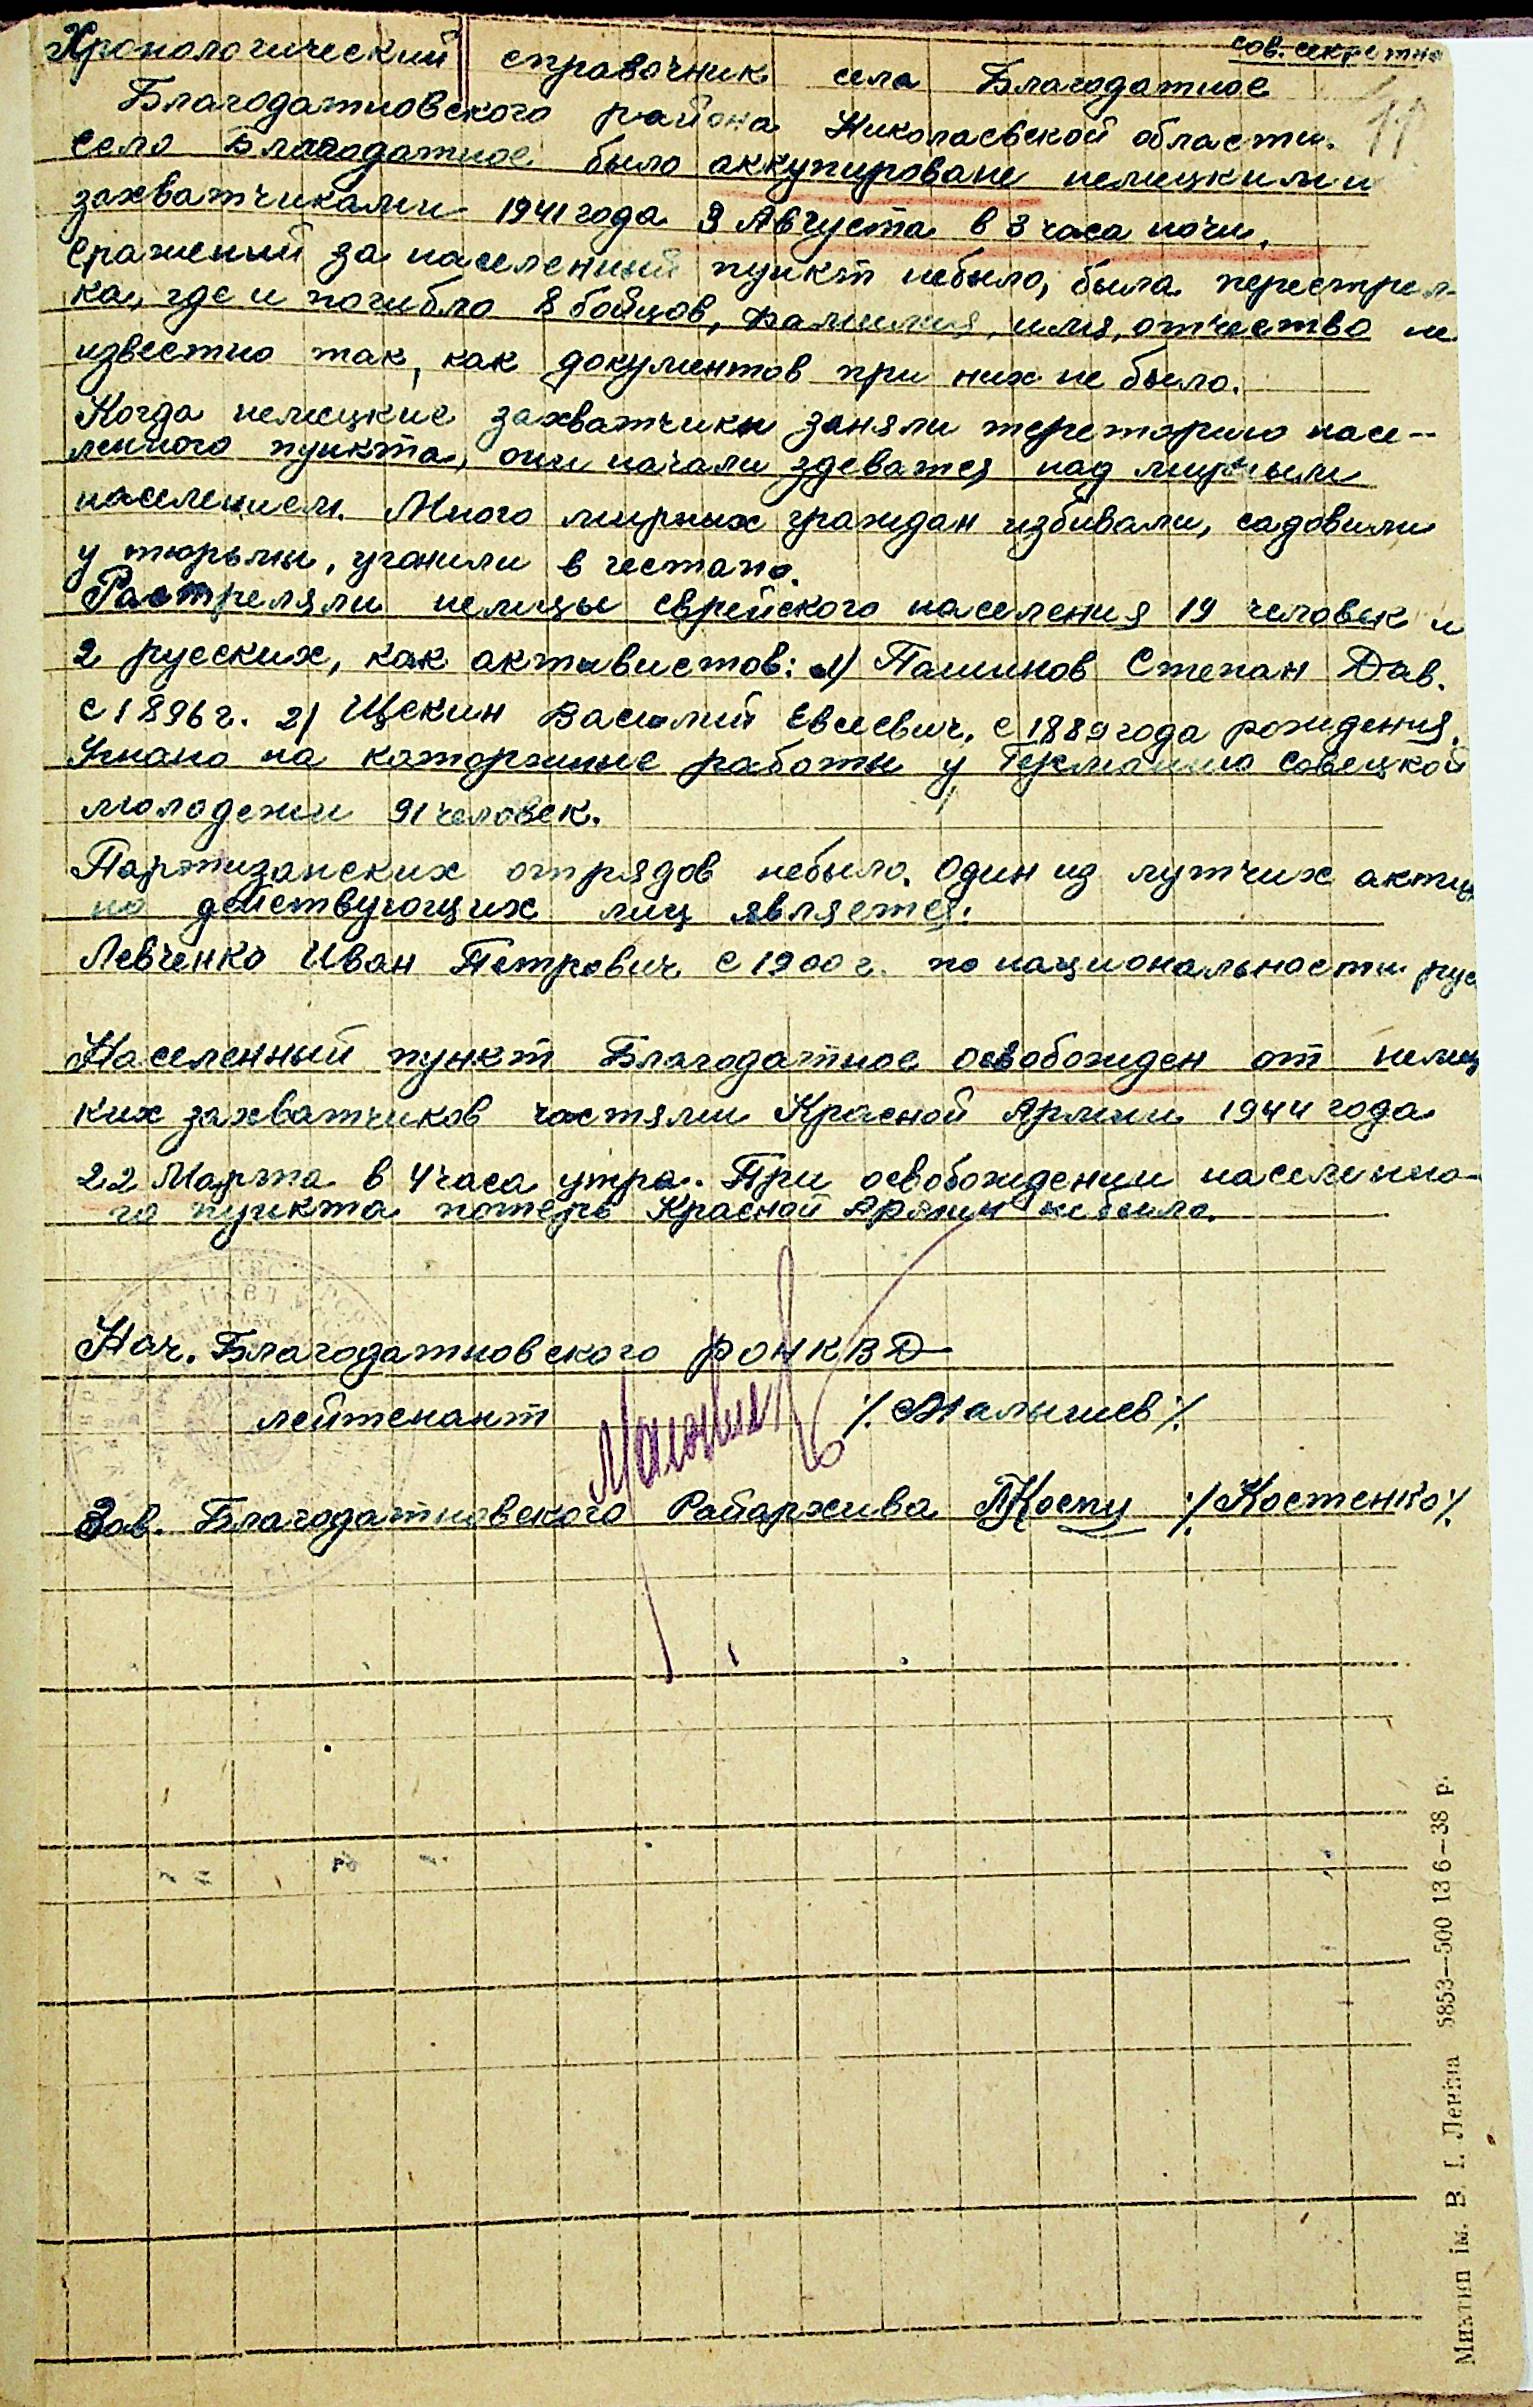 сов. секретно
Хронологический справочник села Благодатное
Благодатновского района Николаевской области.
село Благодатное было аккупироване немецкими
захватчиками 1941 года 3 Августа в 3 часа ночи.
Сражений за населенный пункт небыло, была перестрел-
ка, где и погибло 8 бойцов, фамилия, имя, отчество не
известно так, как документов при них не было.
Когда немецкие захватчики заняли тереторию насе-
ленного пункта, они начали здеватся над мирным
населением. Много мирных граждан избивали, садовили
у тюрьмы, угонили в гестапо.
Растреляли немцы еврейского населения 19 человек и
2 русских, как активистов: 1) Пашинов Степан Дав.
с 1896 г. 2) Щекин Василий Евсеевич, с 1889 года рождения.
Угнано на каторжные работы у Германию совецкой
молодежи 91 человек.
Партизанских отрядов небыло. Один из лутчих актив
но действующих лиц является:
Левченко Иван Петрович с 1900 г. по национальности рус
Населенный пункт Благодатное освобожден от немец
ких захватчиков частями Красной Армии 1944 года
22 Марта в 4 часа утра. При освобождении населенно-
го пункта потерь Красной Армии небыло.
Нач. Благодатновского РОНКВД
лейтенант /Малышев/
Зав. Благодатновского Райархива /Костенко/
5853—500 13 6—38 р.
ім. В. І. Леніна